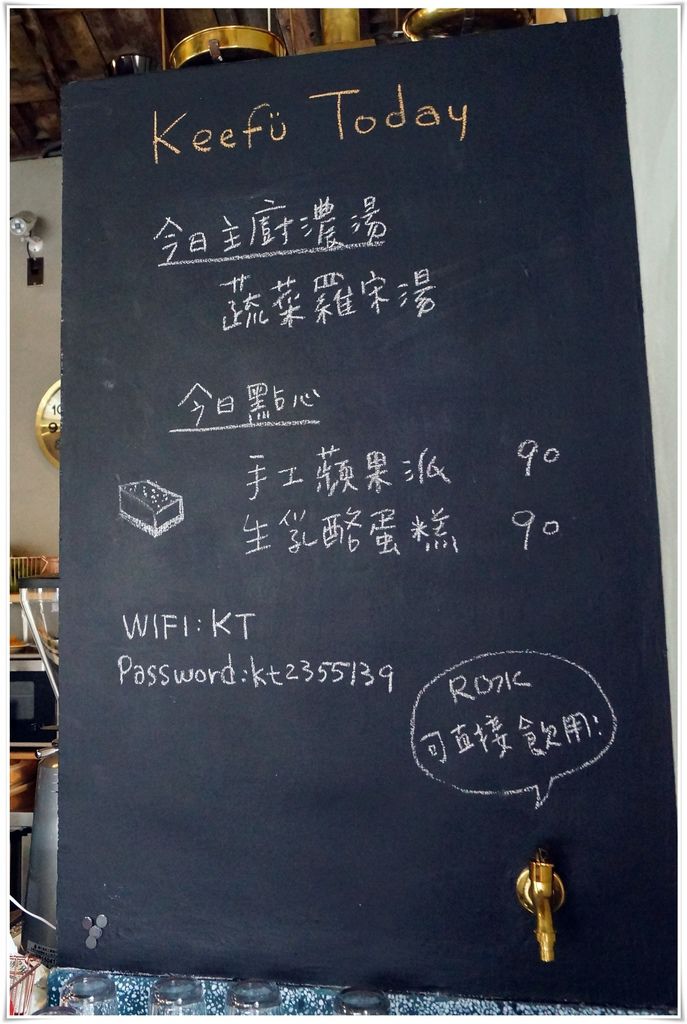 Keefü Today
今日主廚濃湯
蔬菜羅宋湯
今日點心
手工蘋果派 90
生乳酪蛋糕 90
WIFI:KT
Password:kt2355139
RO水
可直接飲用: